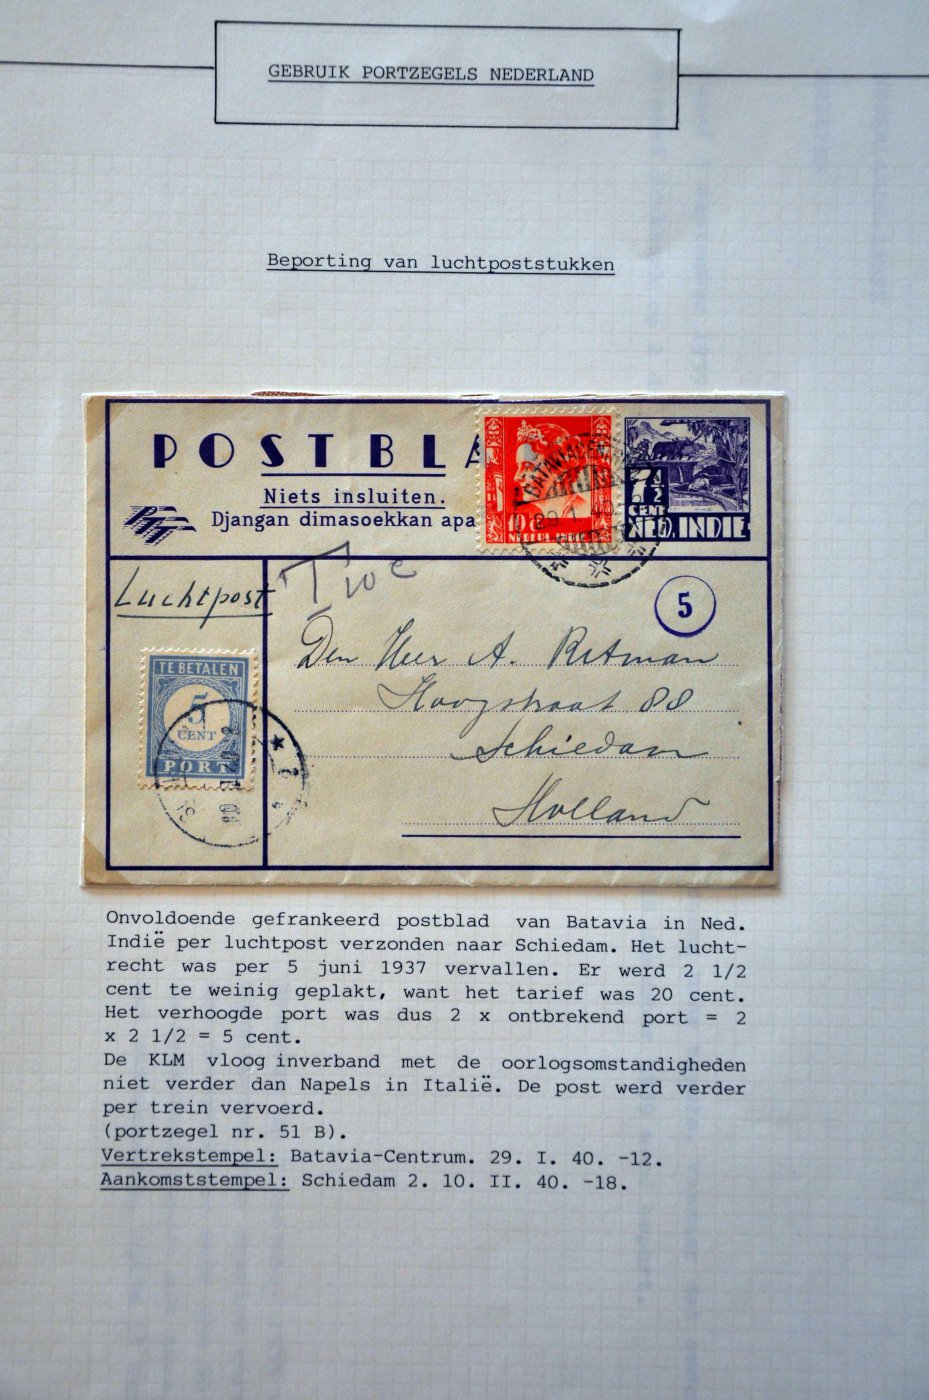 GEBRUIK PORTZEGELS NEDERLAND
Beporting van luchtpoststukken
POSTBLA
Niets insluiten.
Djangan dimasoekkan apa
PTT
10
7 1/2
CENT
NED. INDIE
BATAVIA
29
T 10 c
Luchtpost
5
TE BETALEN
5
CENT
PORT
Den Heer A. Ritman
Hoogstraat 88
Schiedam
Holland
Onvoldoende gefrankeerd postblad van Batavia in Ned.
Indië per luchtpost verzonden naar Schiedam. Het lucht-
recht was per 5 juni 1937 vervallen. Er werd 2 1/2
cent te weinig geplakt, want het tarief was 20 cent.
Het verhoogde port was dus 2 x ontbrekend port = 2
x 2 1/2 = 5 cent.
De KLM vloog inverband met de oorlogsomstandigheden
niet verder dan Napels in Italië. De post werd verder
per trein vervoerd.
(portzegel nr. 51 B).
Vertrekstempel: Batavia-Centrum. 29. I. 40. -12.
Aankomststempel: Schiedam 2. 10. II. 40. -18.